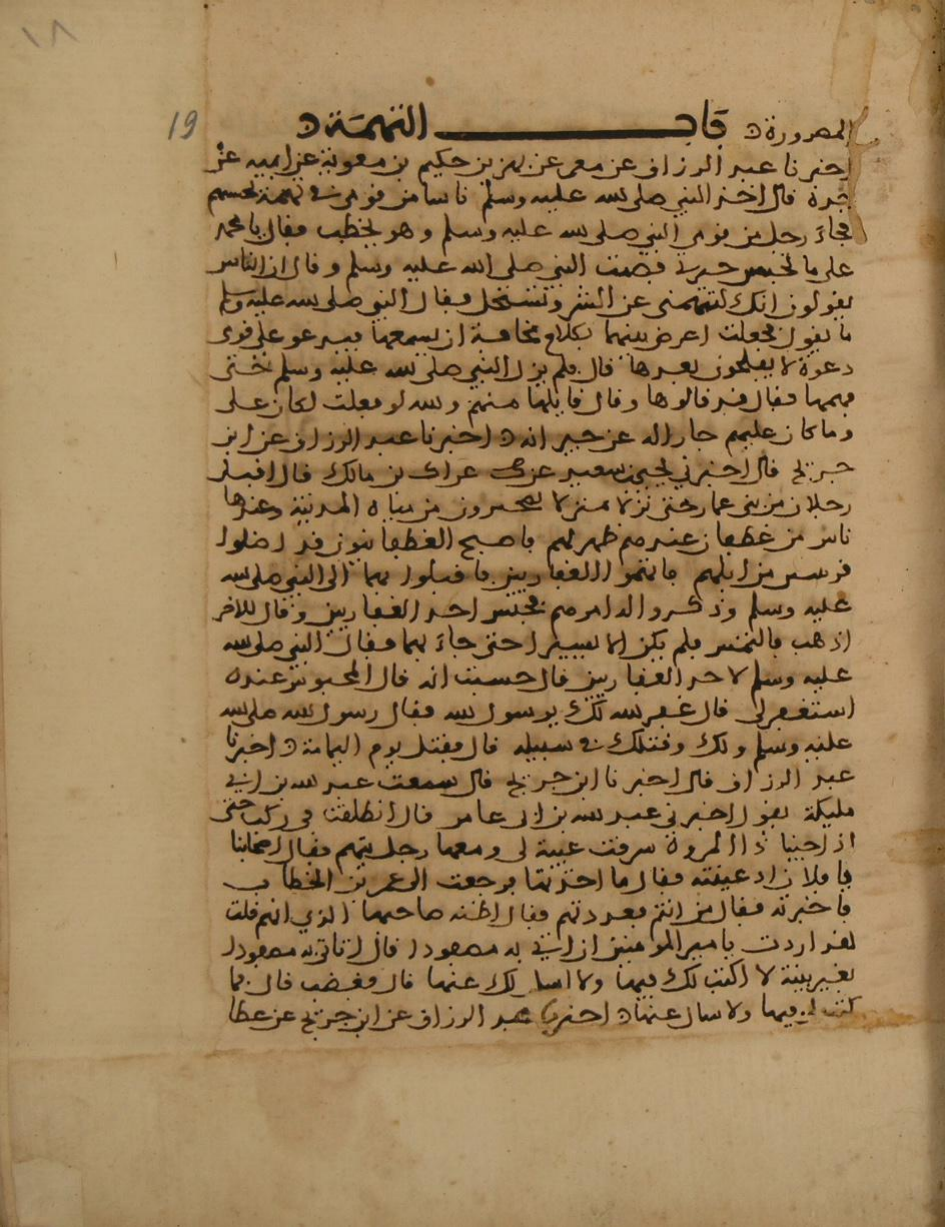 ١٨
19
المصرورة ه باب التهمة ه
اخبرنا عبد الرزاق عن معمر عن بهز بن حكيم بن معوية عن ابيه عن
جده قال اخذ النبي صلى الله عليه وسلم ناسا من قومى في تهمة فحبسهم
فجاء رجل من قومى النبي صلى الله عليه وسلم وهو يخطب فقال يا محمد
على ما تحبس جيرتي فصمت النبي صلى الله عليه وسلم وقال ان الناس
يقولون انك لتنهى عن الشر وتستخلى به فقال النبي صلى الله عليه وسلم
ما يقول فجعلت اعرض بينهما بكلام مخافة ان يسمعها فيدعو على قومى
دعوة لا يفلحون بعدها قال فلم يزل النبي صلى الله عليه وسلم حتى
فهمها فقال قد قالوها وقال قايلها منهم والله لو فعلت لكان على
وما كان عليهم خلوا له عن جيرانه ه اخبرنا عبد الرزاق عن ابن
جريج قال اخبرني يحيى بن سعيد عن عراك بن مالك قال اقبل
رجلان من بنى غفار حتى نزلا منزلا بضجنان من مياه المدينة وعندها
ناس من غطفان عندهم ظهر لهم فاصبح الغطفانيون قد اضلوا
قرينين من ابلهم فاتهموا الغفاريين فاقبلوا بهما الى النبي صلى الله
عليه وسلم وذكروا له امرهم فحبس احد الغفاريين وقال للاخر
اذهب فالتمس فلم يكن الا يسيرا حتى جاء بهما فقال النبي صلى الله
عليه وسلم لاحد الغفاريين قال حسبت انه قال المحبوس عنده
استغفر لى قال غفر الله لك يرسول الله فقال رسول الله صلى الله
عليه وسلم ولك وقتلك في سبيله قال فقتل يوم اليمامة ه اخبرنا
عبد الرزاق قال اخبرنا ابن جريج قال سمعت عبد الله بن ابي
مليكة يقول اخبرنى عبد الله بن ابى عامر قال انطلقت فى ركب حتى
اذا جينا ذا المروة سرقت عيبة لى ومعنا رجل يتهم فقال اصحابنا
يا فلان اد عيبته فقال ما اخذتها فرجعت الى عمر بن الخطاب
فاخبرته فقال من انتم فعددتهم فقال اظنه صاحبها الذي اتهم قلت
لقد اردت يامير المومنين ان اتي به مصفودا قال اتاتى به مصفودا
بغير بينة لا اكتب لك فيها ولا اسال لك عنها قال فغضب قال فما
كتب لي فيها ولا سال عنها ه اخبرنا عبد الرزاق عن ابن جريج عن عطا